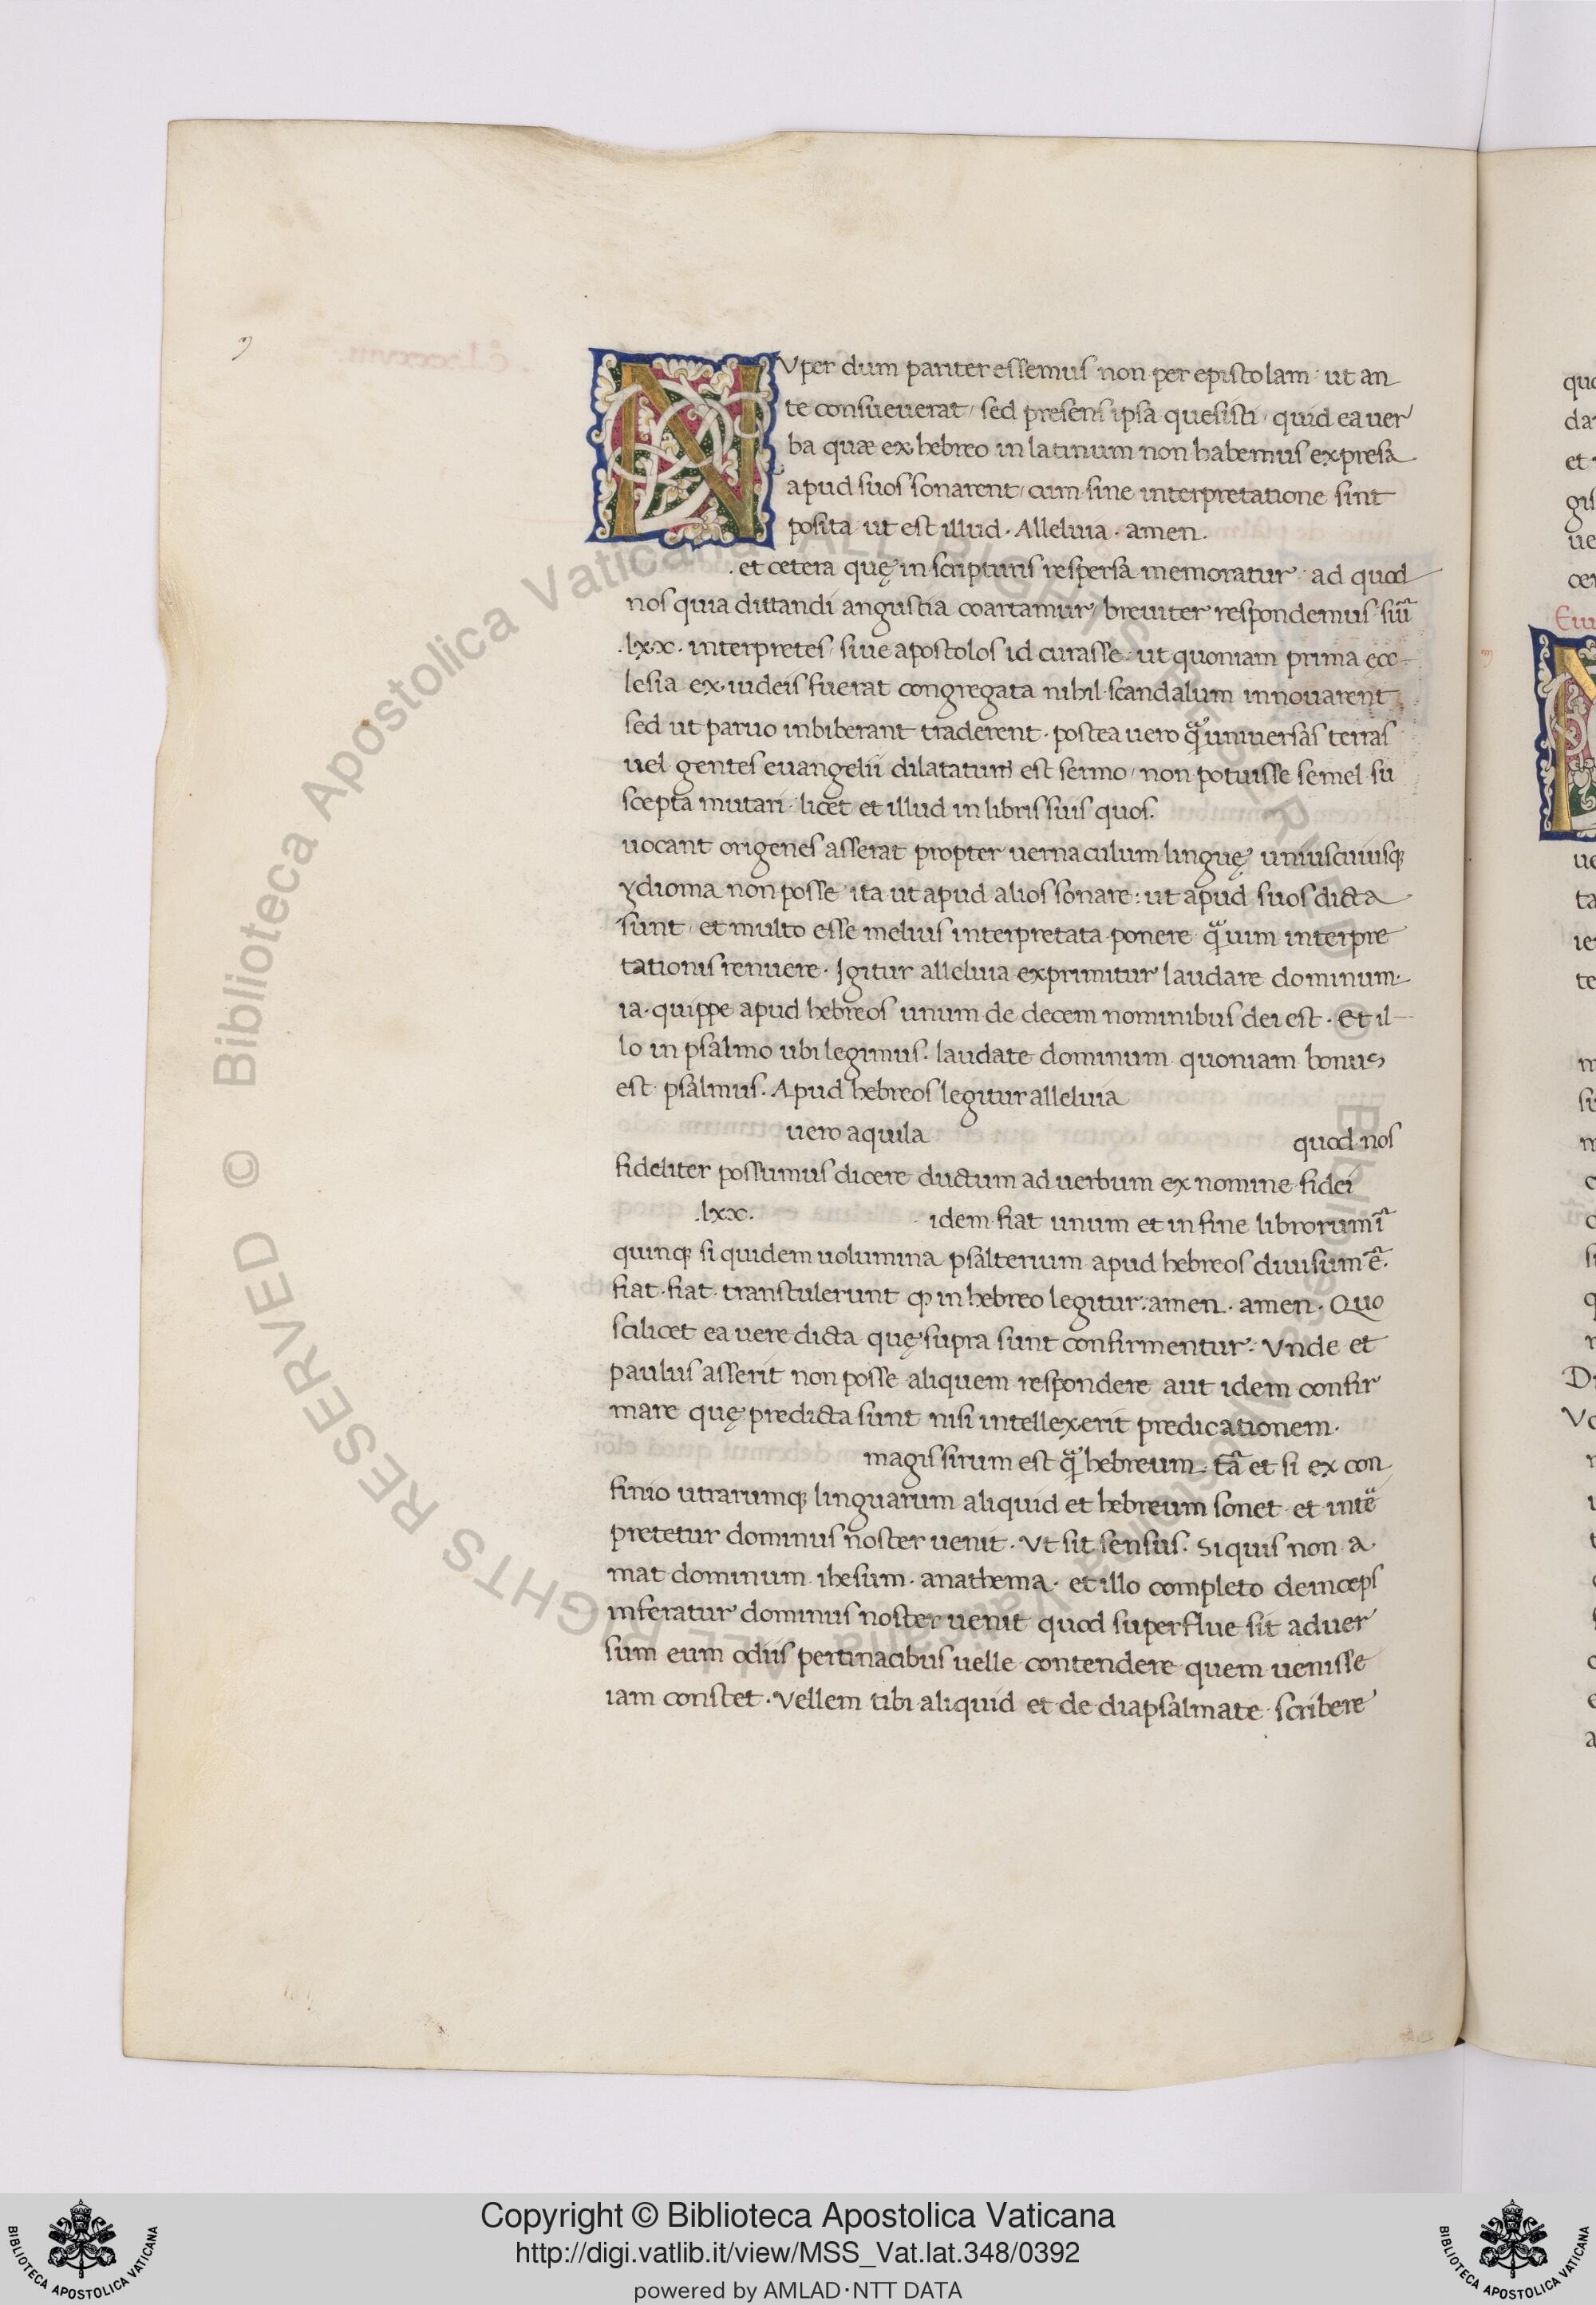 NVper dum pariter essemus non per epistolam: ut an
te consueuerat, sed presens ipsa quesisti, quid ea uer
ba quæ ex hebreo in latinum non habemus expresa
apud suos sonarent, cum sine interpretatione sint
posita ut est illud. Alleluia. amen.
.et cetera quę in scripturis respersa memoratur ad quod
nos quia dittandi angustia coartamur, breuiter respondemus siũ
.lxx. interpretes, siue apostolos id curasse: ut quoniam prima ecc-
lesia ex iudeis fuerat congregata nihil scandalum innouarent
sed ut paruo inbiberant traderent. postea uero q̃ uniuersas terras
uel gentes euangelii dilatatum est sermo, non potuisse semel su
scepta mutari licet et illud in libris suis quos.
uocant origenes asserat propter uernaculum linguę uniuscuiusq;
ydioma non posse ita ut apud alios sonare: ut apud suos dicta
sunt, et multo esse melius interpretata ponere q̃ uim interpre
tationis renuere. Igitur alleluia exprimitur laudare dominum.
ia. quippe apud hebreos unum de decem nominibus dei est. Et il-
lo in psalmo ubi legimus. laudate dominum quoniam bonus
est psalmus. Apud hebreos legitur alleluia
uero aquila quod nos
fideliter possumus dicere ductum ad uerbum ex nomine fidei
.lxx. idem fiat unum et in fine librorum ĩ
quinq; si quidem uolumina psalterium apud hebreos diuisum ẽ.
fiat. fiat. transtulerunt ꝙ in hebreo legitur: amen. amen. Quo
scilicet ea uere dicta quę supra sunt confirmentur. Vnde et
paulus asserit non posse aliquem respondere aut idem confir
mare quę predicta sunt nisi intellexerit predicationem.
magis sirum est q̃ hebreum. tã et si ex con
finio utrarumq; linguarum aliquid et hebreum sonet et intẽ
pretetur dominus noster uenit. Vt sit sensus. Siquis non a
mat dominum ihesum. anathema. et illo completo deinceps
inferatur dominus noster uenit quod superflue sit aduer
sum eum odiis pertinacibus uelle contendere quem uenisse
iam constet. Vellem tibi aliquid et de diapsalmate scribere
Copyright © Biblioteca Apostolica Vaticana
http://digi.vatlib.it/view/MSS_Vat.lat.348/0392
powered by AMLAD·NTT DATA
BIBLIOTECA APOSTOLICA VATICANA
BIBLIOTECA APOSTOLICA VATICANA
© Biblioteca Apostolica Vaticana ALL RIGHTS RESERVED © Biblioteca Apostolica Vaticana ALL RIGHTS RESERVED